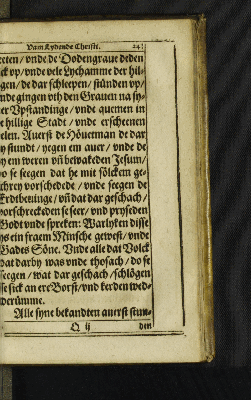 Vam Lydende Christi. 243
reten / vnde de Dodengraue deden
ick vp / vnde vele Lychamme der hil-
igen / de dar schleepen / stünden vp /
nde gingen vth den Grauen na sy-
er Vpstandinge / vnde quemen in
e hillige Stadt / vnde erscheenen
elen. Auerst de Höuetman de dar
y stundt / yegen em auer / vnde de
y em weren vñ bewakeden Jesum /
o se seegen dat he mit sölckem ge-
chrey vorschedede / vnde seegen de
Erdtbeuinge / vñ dat dar geschach /
vorschreckeden se seer / vnd pryseden
Godt vnde spreken: Warlyken disse
ys ein fraem Minsche gewest / vnde
Gades Söne. Vnde alle dat Volck
dat darby was vnde thosach / do se
seegen / wat dar geschach / schlögen
se sick an ere Borst / vnd kerden wed-
derümme.
Alle syne bekandten auerst stun-
Q ij den